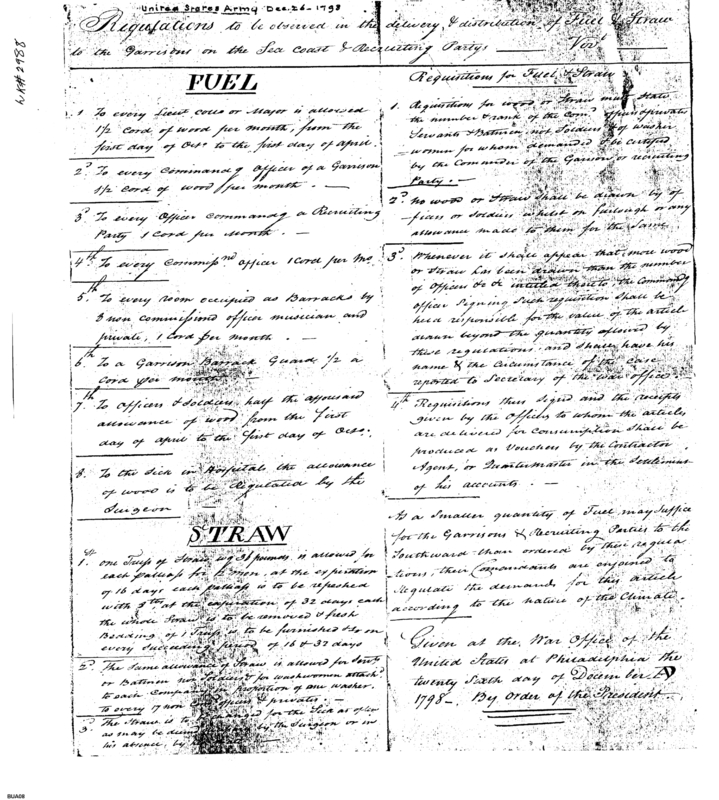 United States Army Dec. 26 - 1798
Regulations to be observed in the delivery & distribution of Fuel & Straw
to the Garrisons on the Sea Coast & Recruiting Partys
FUEL
1 To every Lieut Colo or Major is allowed
1½ Cord of wood per month, from the
first day of Octr to the first day of april.
2d To every Commandg Officer of a Garrison
1½ cord of wood per month. —
3d To every Officer commandg a Recruiting
Party 1 Cord per Month. —
4th To every Commissnd officer 1 Cord per Mo
5th To every room occupied as Barracks by
8 non commissioned officer musician and
private, 1 Cord per month. —
6th To a Garrison Barrack Guard ½ a
cord per month
7th To Officers & Soldiers, half the aforesaid
allowance of wood from the first
day of april to the first day of Octr.
8. To the Sick in Hospital the allowance
of wood is to be Regulated by the
Surgeon
STRAW
1st One Truss of Straw, is allowed for
each palliass for at the expiration
of 16 days each palliass is to be refreshed
with at the expiration of 32 days each
the whole Straw is to be removed & fresh
Bedding of 1 Truss is to be furnished & so on
every Succeeding period of 16 & 32 days
2d The Same allowance of Straw is allowed for
or Batmen not & for washwomen attachd
to each Company in proportion of one washer.
to every 17 non officers & privates. —
3d The Straw is to changed for the Sick as often
as may be by the Surgeon or in
his absence, by
Requisitions for Fuel & Straw
1. Requisitions for wood or Straw must State
the number & rank of the officers private
Servants & Batmen not Soldiers & of washer
women for whom demanded & be certified
by the Commander of the Garrison or recruiting
Party. —
2d no wood or Straw Shall be drawn by of
ficers or Soldiers whilst on furlough or any
allowance made to them for the Same
3d Whenever it shall appear that more wood
or Straw has been drawn than the number
of Officers &c &c intitled thereto. the Commandg
officer Signing Such requisition Shall be
held responsible for the value of the article
drawn beyond the quantity allowed by
these regulations. and have his
name & the Circumstance of the case
reported to Secretary of the war office
4th Requisitions thus Signd and the receipts
given by the Officers to whom the articles
are delivered for Consumption Shall be
produced as Vouchers by the Contractor
Agent, or Quartermaster in the Settlement
of his accounts. —
As a Smaller quantity of Fuel, may Suffice
for the Garrisons & Recruiting Parties to the
Southward than ordered by their regula
tions, their Comandants are enjoined to
Regulate the demands for this article
according to the nature of the Climate.
Given at the War Office of the
United States at Philadelphia the
twenty Sixth day of December AD
1798 — By Order of the President
BUA08